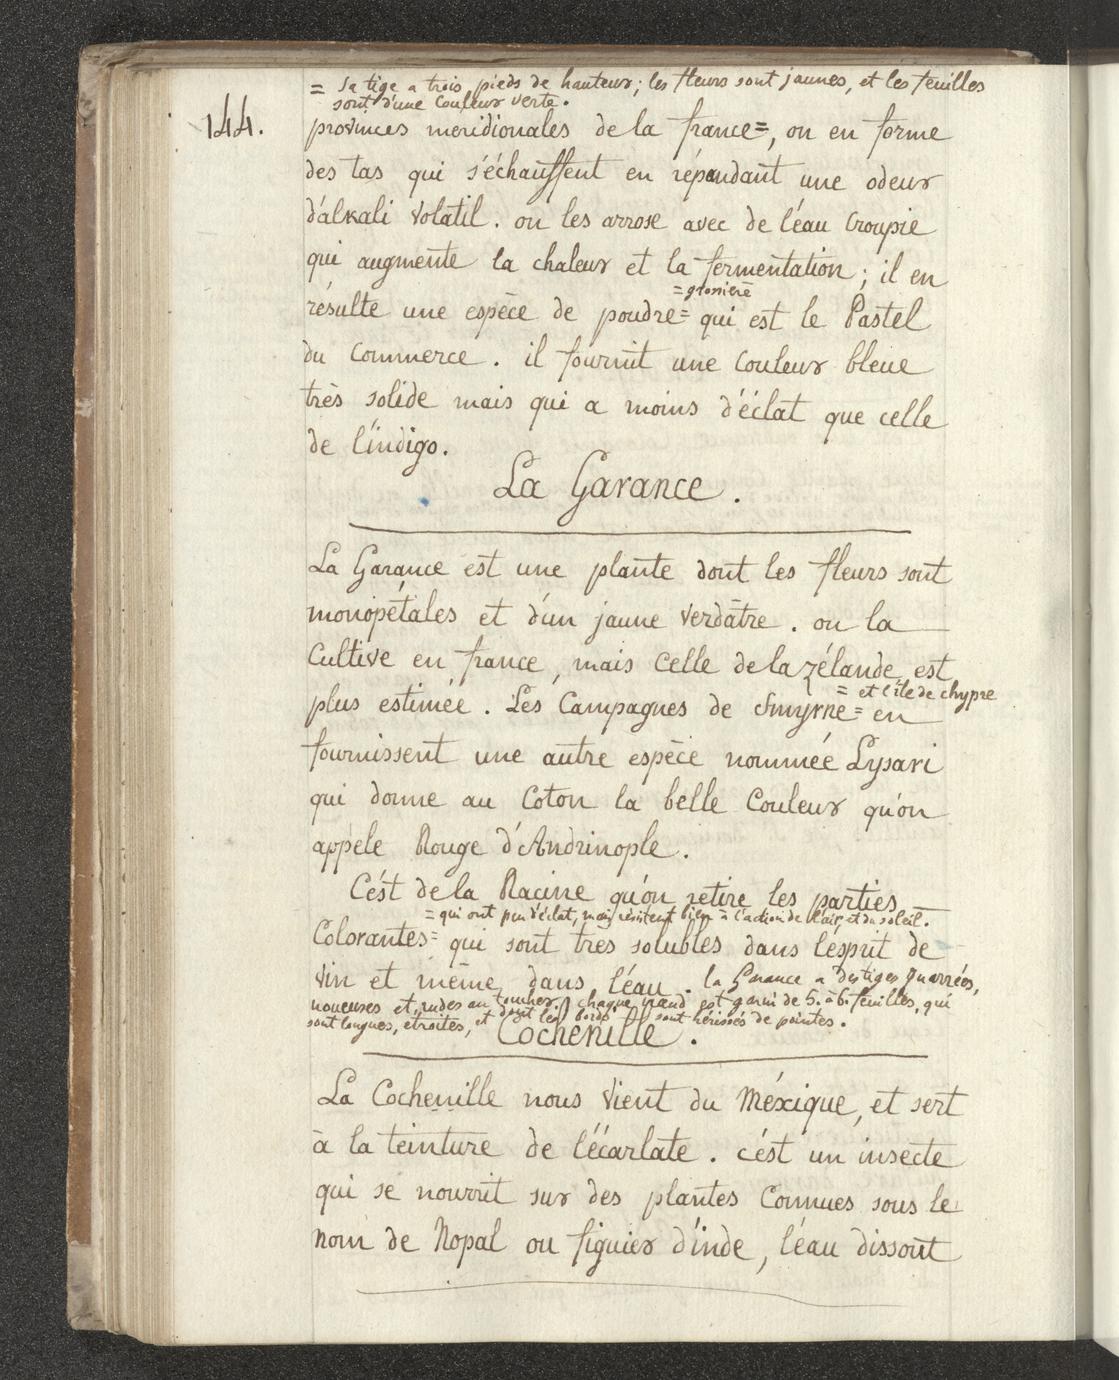 = sa tige a trois pieds de hauteur; les fleurs sont jaunes, et les feuilles
sont d'une couleur verte.
144.
provinces meridionales de la france=, on en forme
des tas qui s'échauffent en répandant une odeur
d'alkali volatil. on les arrose avec de l'éau croupie
qui augmente la chaleur et la fermentation; il en
= grossiere
résulte une espèce de poudre= qui est le Pastel
du Commerce. il fournit une couleur bleue
très solide mais qui a moins d'éclat que celle
de l'indigo.
La Garance.
La Garance est une plante dont les fleurs sont
monopétales et d'un jaune verdâtre. on la
Cultive en france, mais celle de la zélande est
= et l'île de chypre
plus estimée. Les Campagnes de Smyrne= en
fournissent une autre espèce nommée Lysari
qui donne au Coton la belle Couleur qu'on
appèle Rouge d'Andrinople.
C'ést de la Racine qu'on retire les parties
= qui ont peu d'éclat, mais résistent bien à l'action de l'air, et du soleil.
Colorantes= qui sont très solubles dans l'ésprit de
vin et même dans l'éau. la Garance a des tiges quarrées,
noueuses et rudes au toucher. chaque nœud est garni de 5. à 6. feuilles, qui
sont longues, etroites, et dont les bords sont hérissés de pointes.
Cochenille.
La Cochenille nous vient du Méxique, et sert
à la teinture de l'écarlate. c'ést un insecte
qui se nourrit sur des plantes Connues sous le
nom de Nopal ou figuier d'inde, l'éau dissout